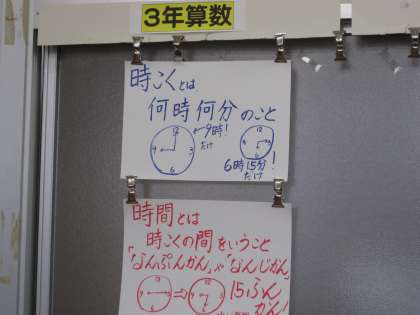 3年算数
時こくとは
何時何分のこと
12 3 6 9
9時!
だけ
12 3 6 9
6時15分!
だけ
時間とは
時こくの間をいうこと
「なんぷんかん」や「なんじかん」
12 3 6 9 ⇒ 12 3 6 9
15ふん
かん!